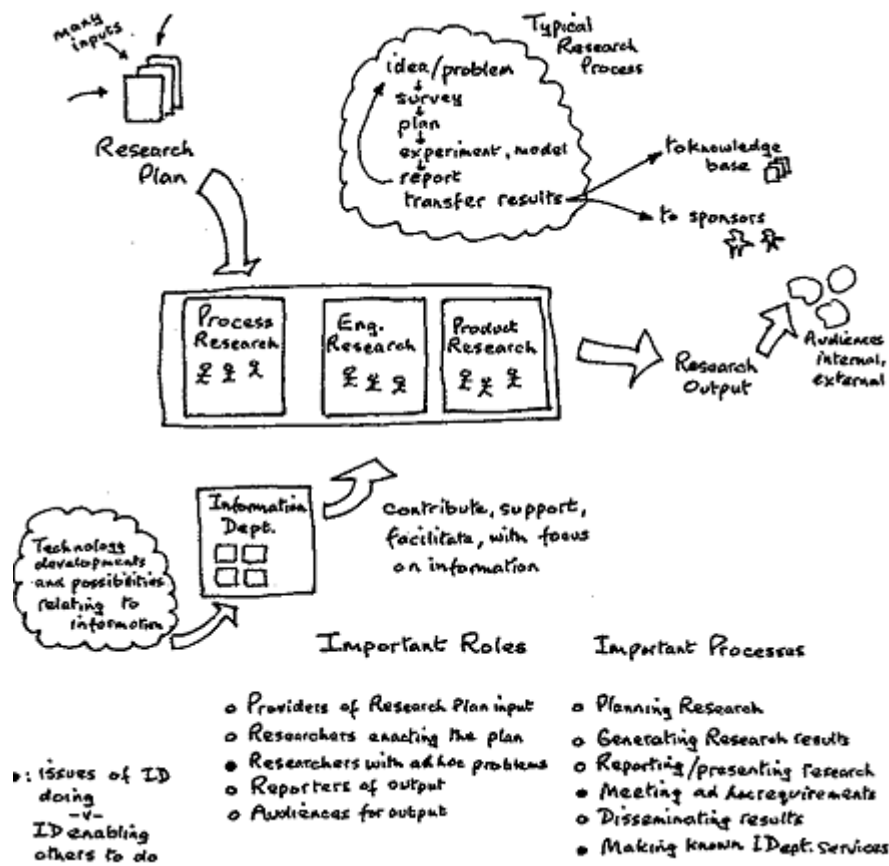 many
inputs
Research
Plan
Typical
Research
Process
idea/problem
survey
plan
experiment, model
report
transfer results
to knowledge
base
to sponsors
Process
Research
Eng.
Research
Product
Research
Research
Output
Audiences
internal,
external
Information
Dept.
contribute, support,
facilitate, with focus
on information
Technology
developments
and possibilities
relating to
information
Important Roles
o Providers of Research Plan input
o Researchers enacting the plan
• Researchers with ad hoc problems
o Reporters of output
o Audiences for output
Important Processes
o Planning Research
o Generating Research results
o Reporting/presenting research
• Meeting ad hoc requirements
o Disseminating results
• Making known IDept. Services
•: issues of ID
doing
-v-
ID enabling
others to do